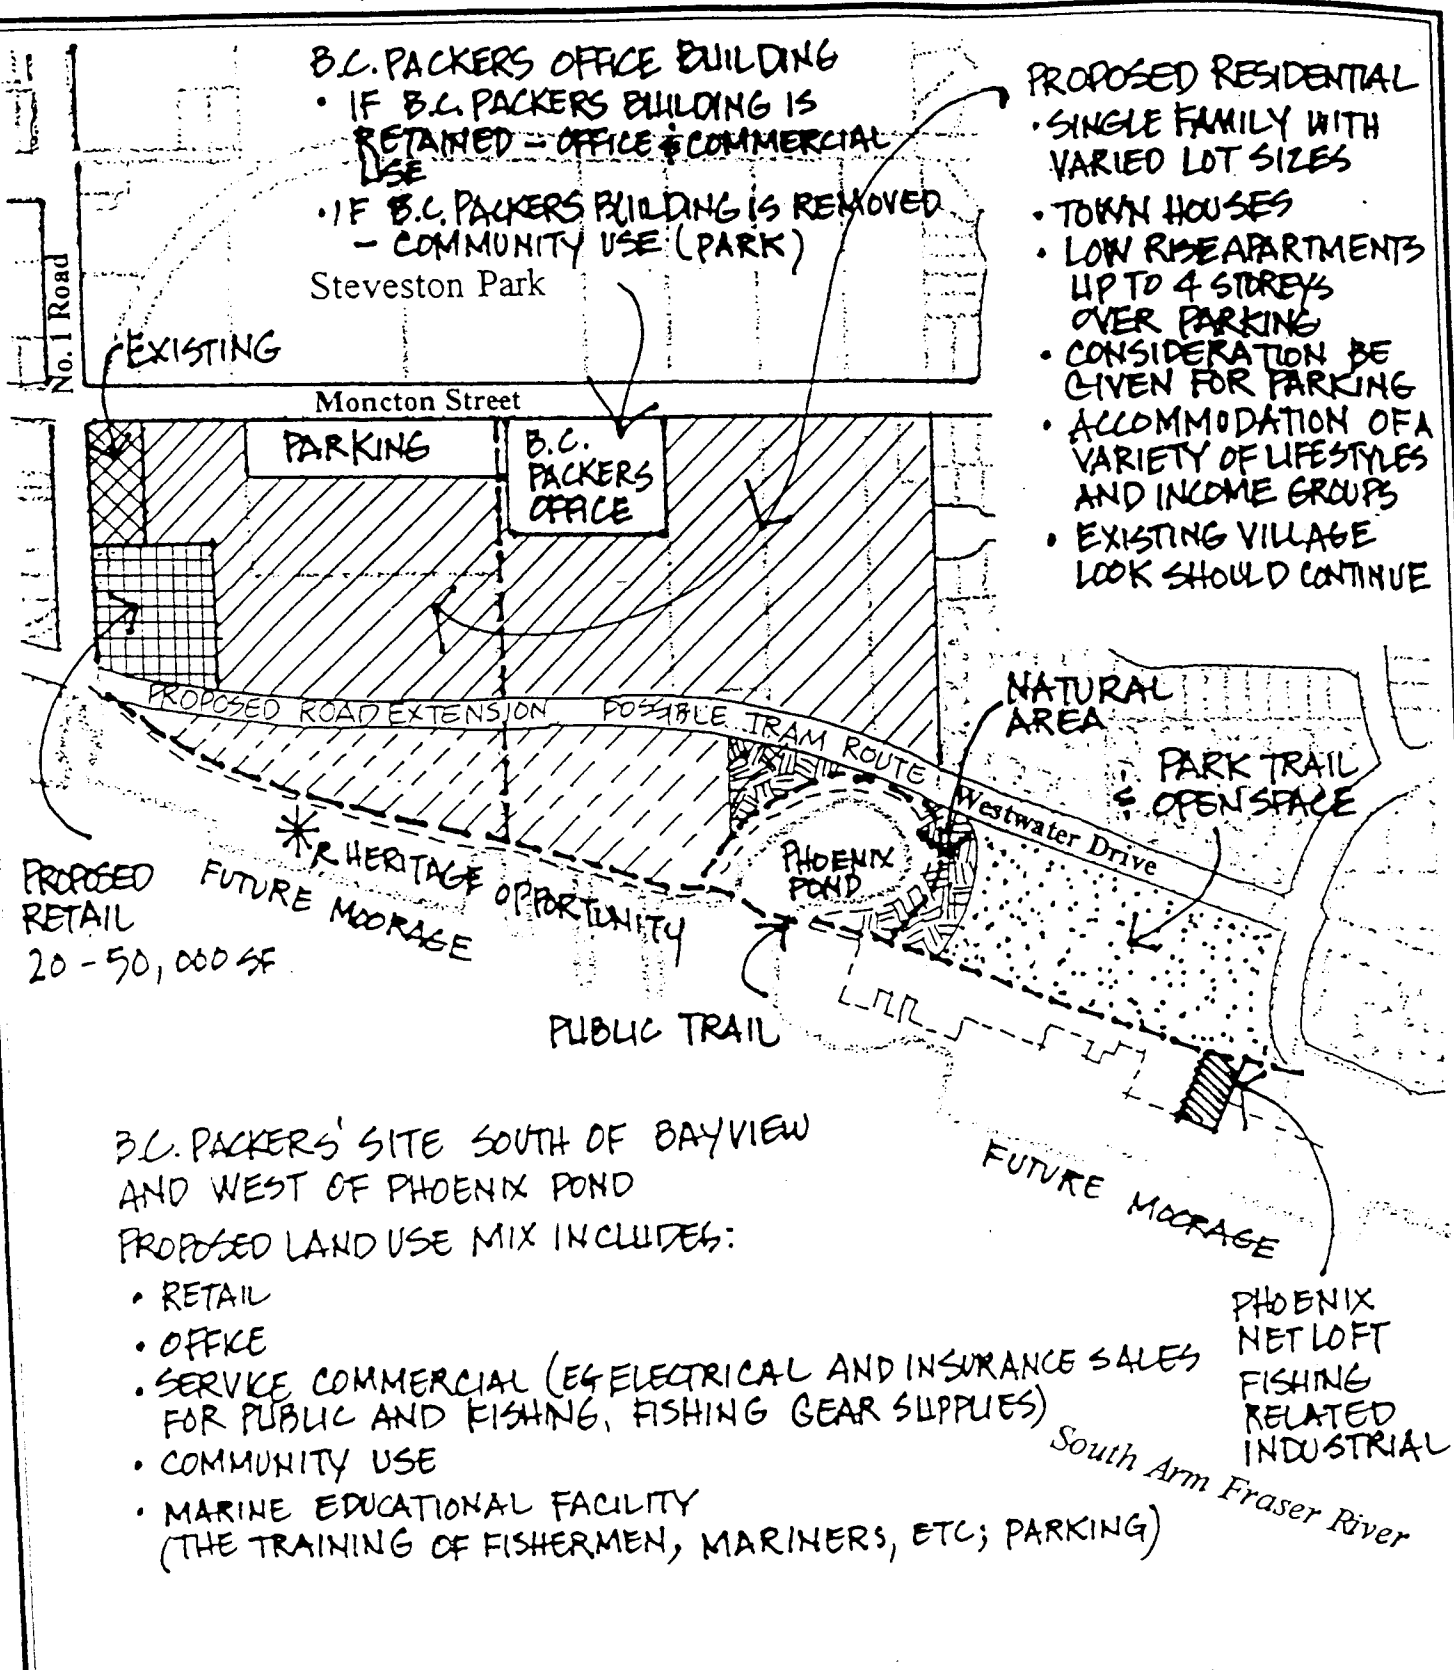 B.C. PACKERS OFFICE BUILDING
• IF B.C. PACKERS BUILDING IS
RETAINED – OFFICE & COMMERCIAL
USE
• IF B.C. PACKERS BUILDING IS REMOVED
– COMMUNITY USE (PARK)
Steveston Park
PROPOSED RESIDENTIAL
• SINGLE FAMILY WITH
VARIED LOT SIZES
• TOWN HOUSES
• LOW RISE APARTMENTS
UP TO 4 STOREYS
OVER PARKING
• CONSIDERATION BE
GIVEN FOR PARKING
• ACCOMMODATION OF A
VARIETY OF LIFESTYLES
AND INCOME GROUPS
• EXISTING VILLAGE
LOOK SHOULD CONTINUE
No. 1 Road
EXISTING
Moncton Street
PARKING
B.C.
PACKERS
OFFICE
PROPOSED ROAD EXTENSION POSSIBLE TRAM ROUTE
Westwater Drive
NATURAL
AREA
PARK TRAIL
& OPEN SPACE
PHOENIX
POND
HERITAGE OPPORTUNITY
PROPOSED
RETAIL
20 - 50,000 SF
FUTURE MOORAGE
PUBLIC TRAIL
FUTURE MOORAGE
PHOENIX
NET LOFT
FISHING
RELATED
INDUSTRIAL
B.C. PACKERS' SITE SOUTH OF BAYVIEW
AND WEST OF PHOENIX POND
PROPOSED LAND USE MIX INCLUDES:
• RETAIL
• OFFICE
• SERVICE COMMERCIAL (EG ELECTRICAL AND INSURANCE SALES
FOR PUBLIC AND FISHING, FISHING GEAR SUPPLIES)
• COMMUNITY USE
• MARINE EDUCATIONAL FACILITY
(THE TRAINING OF FISHERMEN, MARINERS, ETC; PARKING)
South Arm Fraser River